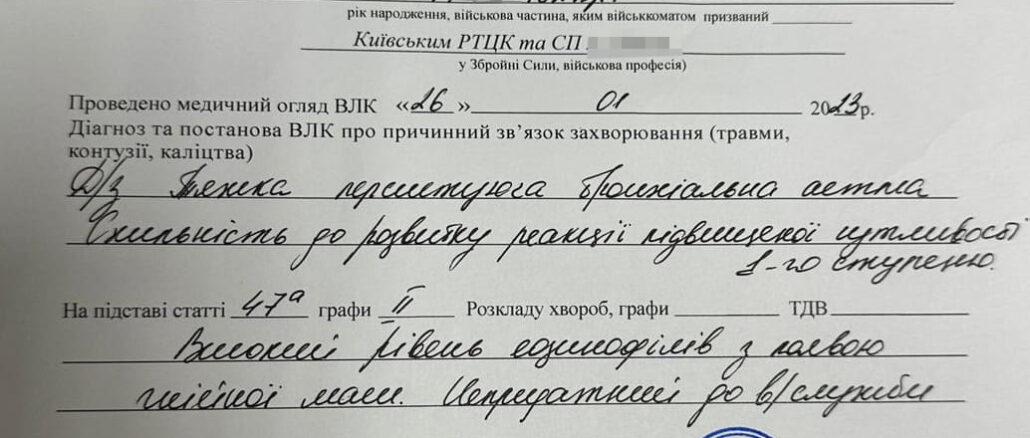 рік народження, військова частина, яким військкоматом призваний
Київським РТЦК та СП
у Збройні Сили, військова професія)
Проведено медичний огляд ВЛК «26» 01 2023р.
Діагноз та постанова ВЛК про причинний зв’язок захворювання (травми,
контузії, каліцтва)
Д/з Тяжка персистуюча бронхіальна астма
Схильність до розвитку реакції підвищеної чутливості
1-го ступеню.
На підставі статті 47а графи II Розкладу хвороб, графи ТДВ
Високий рівень еозинофілів з появою
маси. Непридатний до в/служби